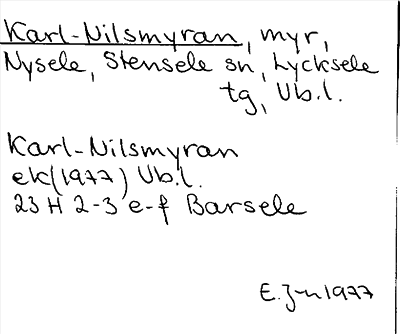 Karl-Nilsmyran, myr,
Nysele, Stensele sn, Lycksele
tg, Vb.l.
Karl-Nilsmyran
ek(1977) Vb.l.
23 H 2-3 e-f Barsele
1977